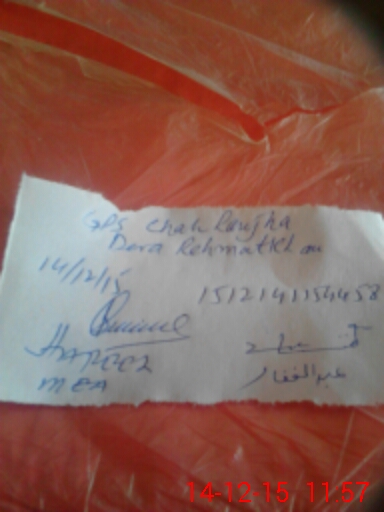 GPS Chah Ranjha
Dera Rehmat Khan
14/12/15
1512141154458
Hafeez
MEA
عبدالغفار
14-12-15 11:57